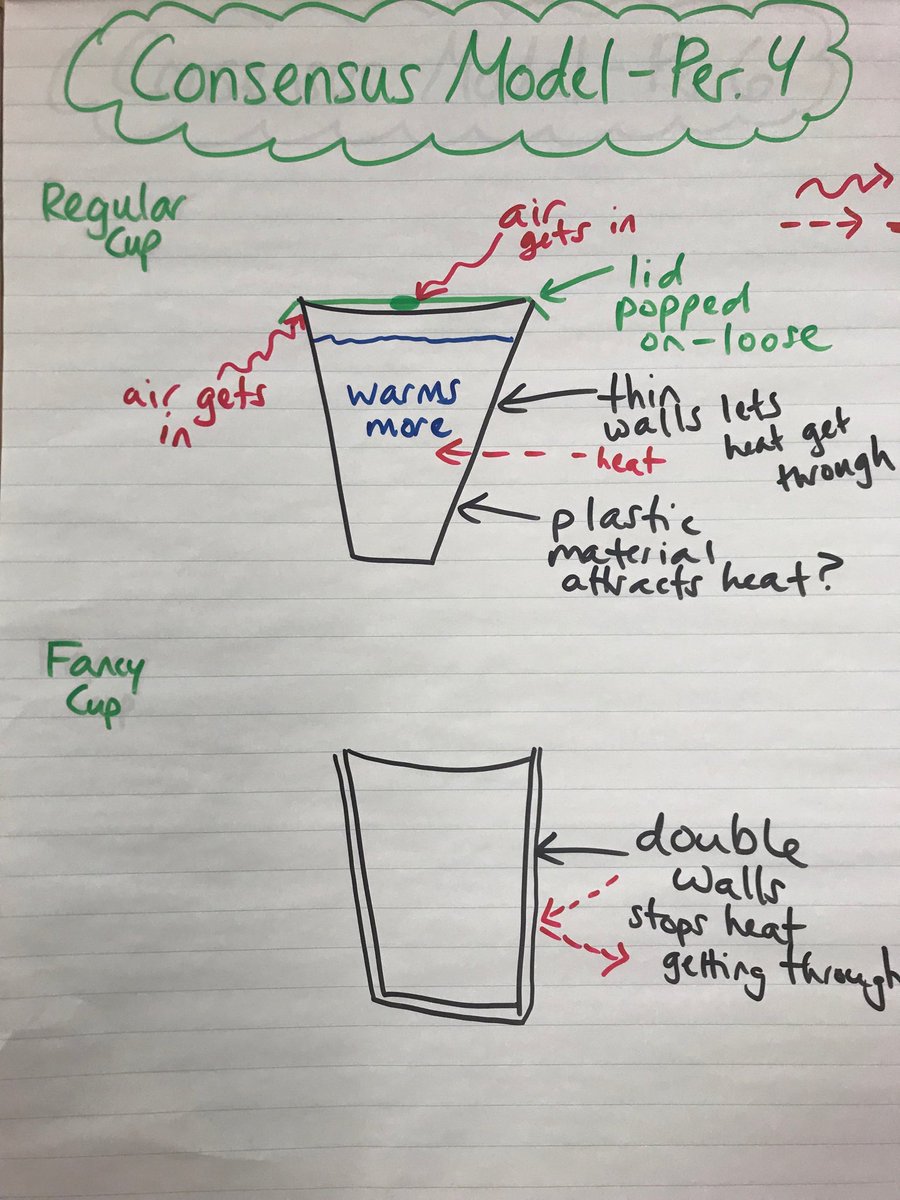 Consensus Model - Per. 4
Regular
Cup
air
gets in
lid
popped
on-loose
air gets
in
warms
more
thin
walls lets
heat get
through
heat
plastic
material
attracts heat?
Fancy
Cup
double
walls
stops heat
getting through